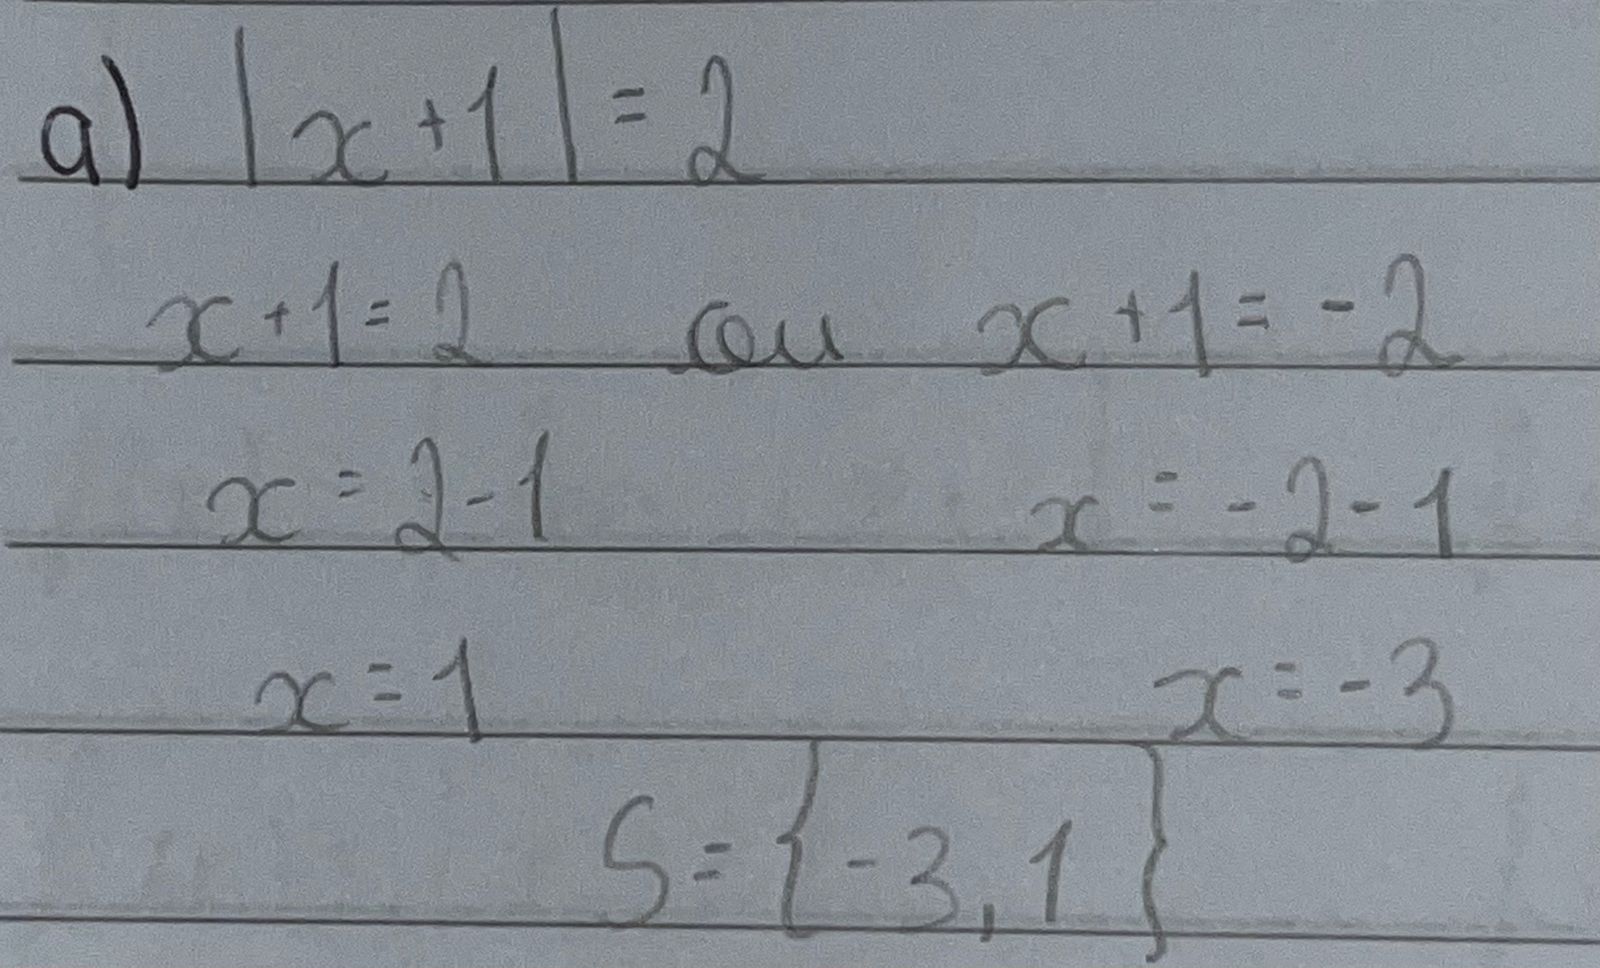 a) |x+1| = 2
x+1=2 ou x+1=-2
x=2-1 x=-2-1
x=1 x=-3
S={-3,1}